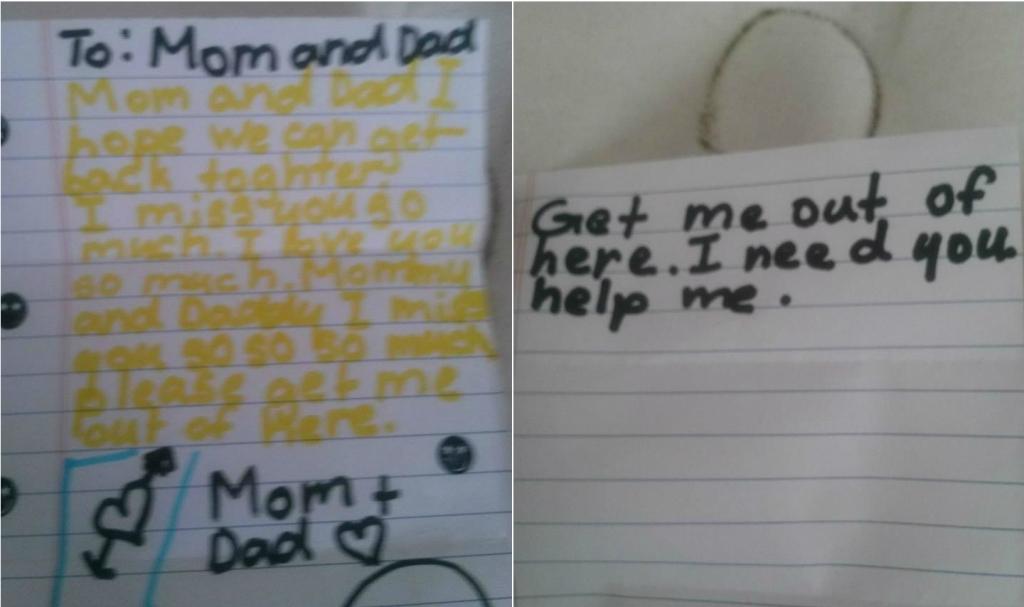 To: Mom and Dad
Mom and Dad I
hope we can get
back toghter
I miss you so
much. I love you
so much. Mommy
and Daddy I miss
you so so so much
please get me
out of Here.
Mom +
Dad
Get me out of
here. I need you
help me.